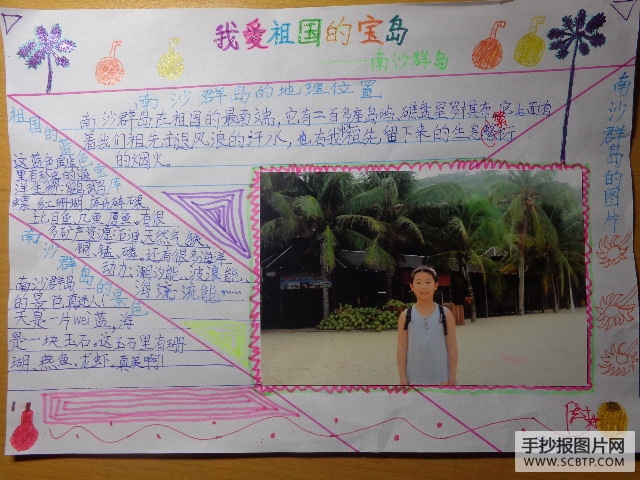 我爱祖国的宝岛
——南沙群岛
南沙群岛的地理位置
南沙群岛在祖国的最南端，它有二百多座岛屿，礁盘星罗棋布，它上面有
着我们祖先击退风浪的汗水，也有我祖先留下来的生息繁衍
的烟火。
祖国的蓝色宝库
这蓝色宝库
里有珍贵的海
洋生物：鹦鹉
螺、红珊瑚
比目鱼、几鱼、
多矿产资源：石油、天然气、铁、
铜、锰、磷，还有很多海洋
动力：潮汐能、波浪能，
海流能……
南沙群岛的景色
南沙群岛
的景色真迷人！
天是一片wei蓝，海
是一块玉石。这玉石里有珊
瑚、燕鱼、龙虾。真美啊！
南沙群岛的图片
手抄报图片网
WWW.SCBTP.COM